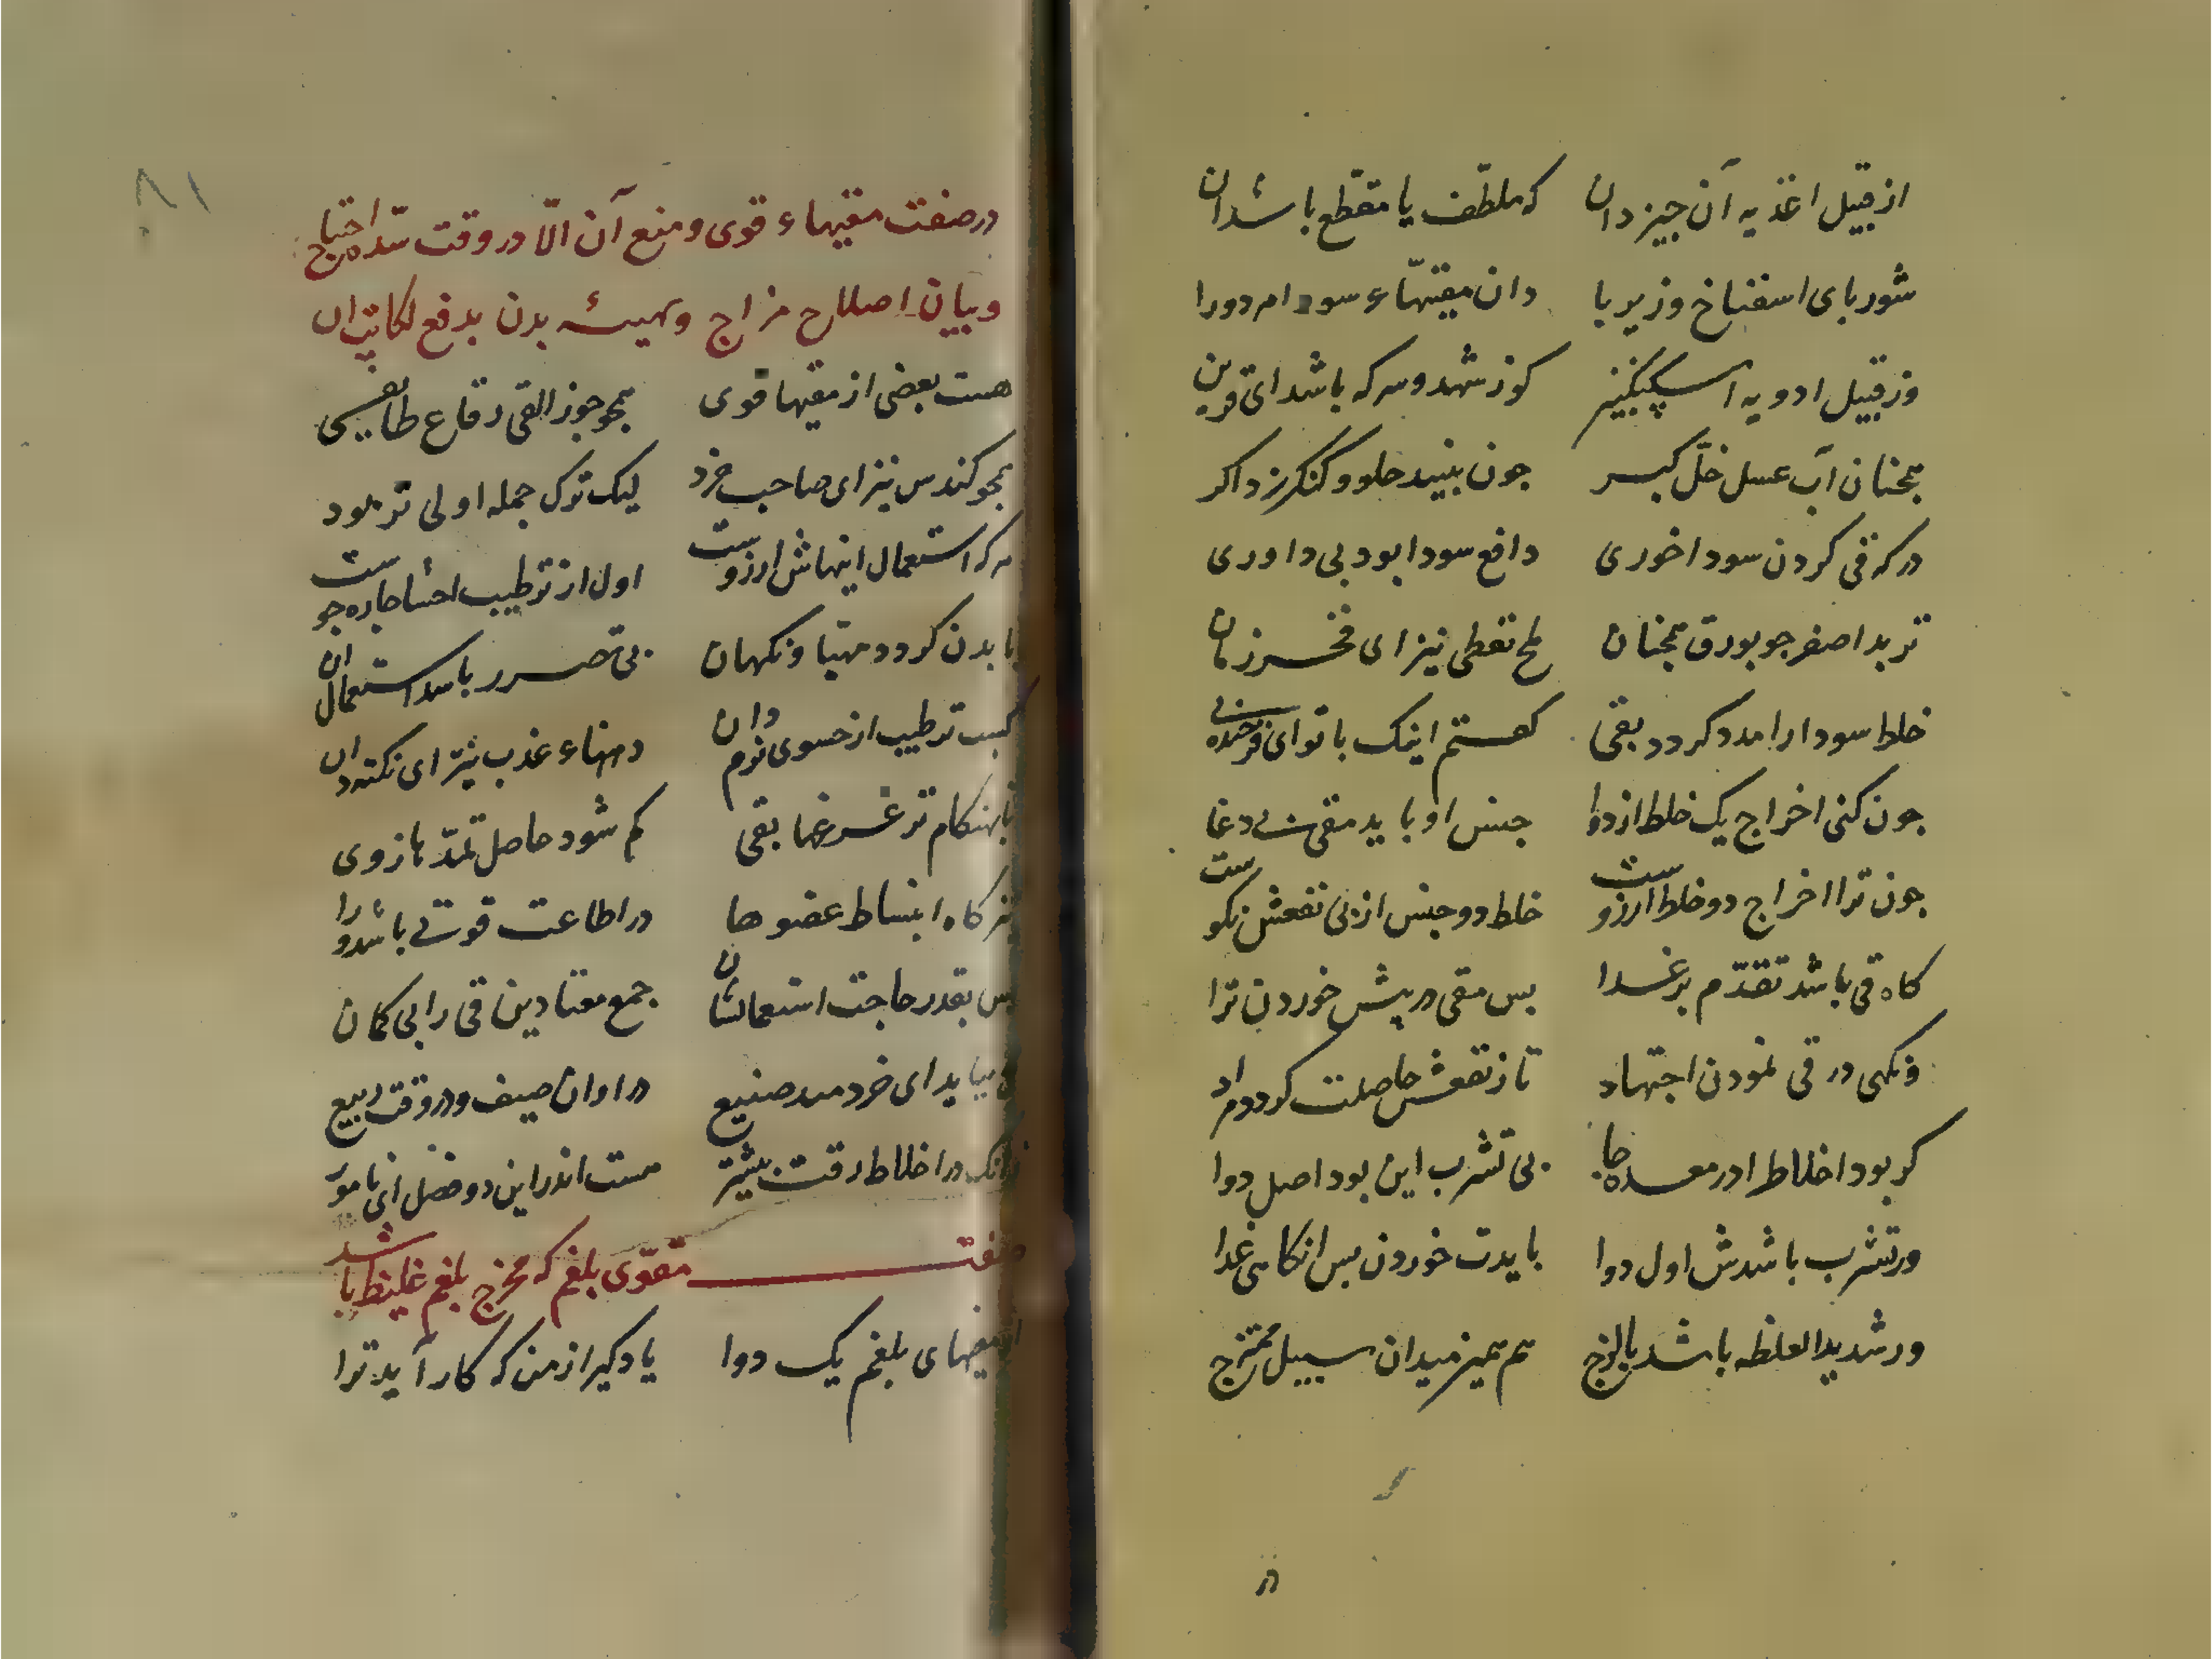 از قبیل اغذیه آن چیز دان که ملطّف یا مقطّع باشد آن
شوربای اسفناخ و زیربا دان مقیّهاء سودا مر دورا
وز قبیل ادویه اسکنجبین کوز شهد و سرکه باشد ای قرین
همچنان آب عسل خلّ کبر جون نبیند حلو و کنکرزد اکر
در که قی کردن سودا خوری دافع سودا بود بی داوری
تربد اصفر جو بورق همچنان ملح نفطی نیز ای فخر زمان
خلط سودا را مدد کردد بقی کفتم اینک با تو ای فرخنده پی
جون کنی اخراج یک خلط از دوا جنس او باید مقی نی دغا
جون ترا اخراج دو خلط آرزوست خلط دو جنس از پی نفعش نکوست
کاه قی باشد تقدّم بر غدا بس مقی در پیش خوردن ترا
ونکهی در قی نمودن اجتهاد تا ز نقعش حاصلت کردد مراد
کر بود اخلاط در معده جا بی تشرب این بود اصل دوا
ور تشرب باشدش اول دوا بایدت خوردن بس انکاهی غدا
ور شدید الغلظه باشد یا لزج هم تمیز میدان سبیل ممتزج
۸۱
در صفت مقیهاء قوی و منع آن الّا در وقت شدّه احتیاج
و بیان اصلاح مزاج و تهیئه بدن بدفع نکایت آن
هست بعضی از مقیها قوی همجو جوز القی رقاع طایفی
همجو کندس نیز ای صاحب خرد لیک ترک جمله اولی تر بود
هر که استعمال اینهاش آرزوست اول از ترطیب احشا جاره جوست
تا بدن کردد مهیا ونکهان بی ضرر باشد استعمال آن
کسب ترطیب از حسوی نرم دان دهنهاء عذب نیز ای نکته دان
تا بهنکام تر غرغها بقی کم شود حاصل تمدّدها ز وی
نیز کاه انبساط عضوها در اطاعت قوتی باشد ورا
بس بقدر حاجت استعمالشان جمع معتادین قی را بی کمان
می بباید ای خردمند صنیع در اوان صیف و در وقت ربیع
زانک در اخلاط رقت بیشتر هست اندر این دو فصل ای نامور
صفت مقوّی بلغم که مخرج بلغم غلیظ باشد
از مقیهای بلغم یک دوا یاد کیر از من که کار آید ترا